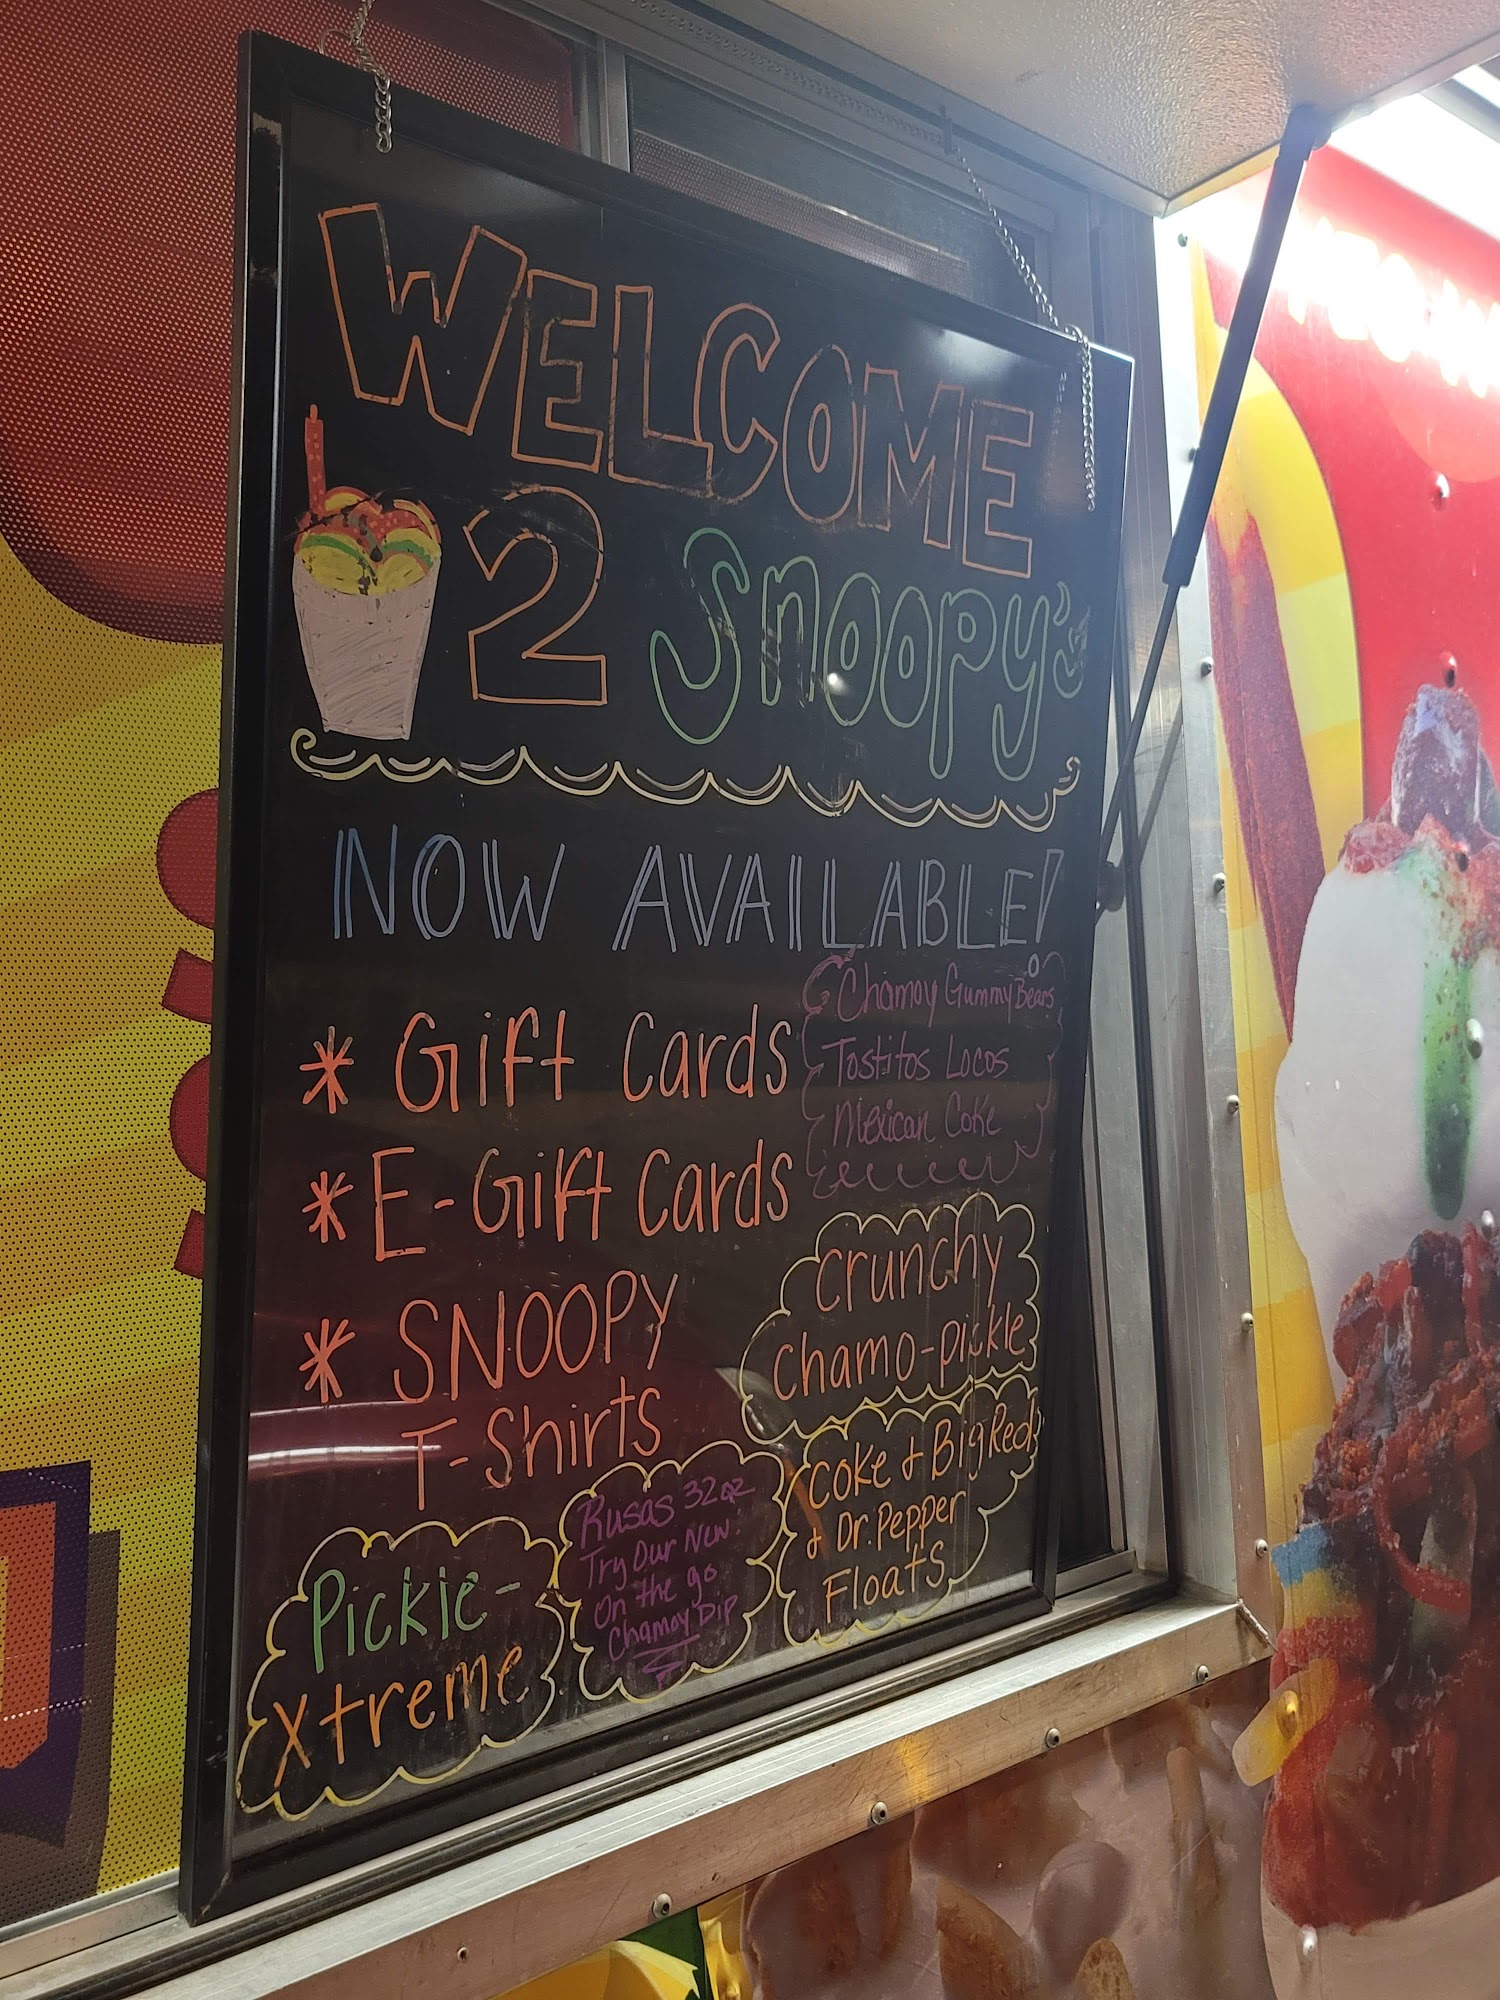 WELCOME
2 Snoopy's
NOW AVAILABLE!
* Gift Cards
* E-Gift Cards
* SNOOPY
T-Shirts
Chamoy Gummy Bears
Tostitos Locos
Mexican Coke
Crunchy
Chamo-pickle
Coke & Big Red
& Dr. Pepper
Floats
Rusas 32oz
Try Our New
On the go
Chamoy Dip
Pickle-
Xtreme